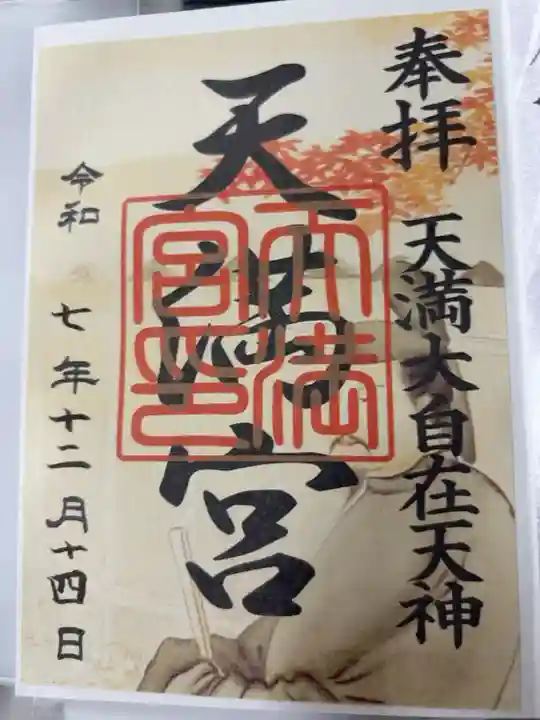 奉拝 天満大自在天神
天満宮
天満
宮印
令和 七年十二月十四日